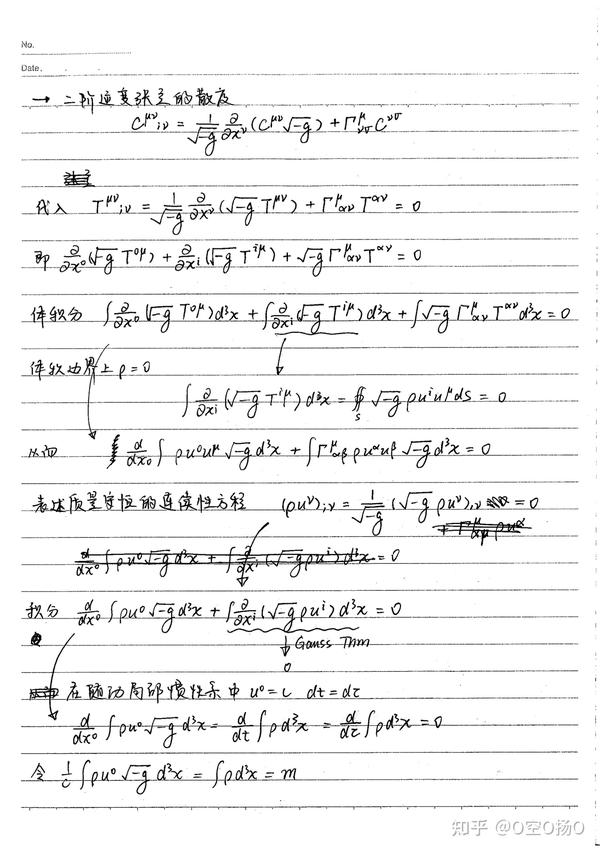 No.
Date.
→ 二阶逆变张量的散度
C^{μν}_{;ν} = \frac{1}{\sqrt{-g}} \frac{∂}{∂x^ν}(C^{μν}\sqrt{-g}) + Γ^μ_{νσ} C^{νσ}
代入 T^{μν}_{;ν} = \frac{1}{\sqrt{-g}} \frac{∂}{∂x^ν}(\sqrt{-g} T^{μν}) + Γ^μ_{αν} T^{αν} = 0
即 \frac{∂}{∂x^0}(\sqrt{-g} T^{0μ}) + \frac{∂}{∂x^i}(\sqrt{-g} T^{iμ}) + \sqrt{-g} Γ^μ_{αν} T^{αν} = 0
体积分 ∫\frac{∂}{∂x^0}(\sqrt{-g} T^{0μ})d^3x + ∫\frac{∂}{∂x^i}(\sqrt{-g} T^{iμ})d^3x + ∫\sqrt{-g} Γ^μ_{αν} T^{αν} d^3x = 0
体积边界上 ρ = 0
∫\frac{∂}{∂x^i}(\sqrt{-g} T^{iμ}) d^3x = ∯_S \sqrt{-g} ρu^i u^μ dS = 0
从而 \frac{d}{dx^0} ∫ρu^0u^μ \sqrt{-g} d^3x + ∫Γ^μ_{αβ} ρu^αu^β \sqrt{-g} d^3x = 0
表述质量守恒的连续性方程 (ρu^ν)_{;ν} = \frac{1}{\sqrt{-g}} (\sqrt{-g} ρu^ν)_{,ν} = 0
+ Γ^μ_{αμ} ρu^α
\frac{d}{dx^0}∫ρu^0\sqrt{-g} d^3x + ∫\frac{∂}{∂x^i}(\sqrt{-g}ρu^i)d^3x = 0
积分 \frac{d}{dx^0}∫ρu^0\sqrt{-g} d^3x + ∫\frac{∂}{∂x^i}(\sqrt{-g}ρu^i)d^3x = 0
↓ Gauss Thm
0
在随动局部惯性系中 u^0 = c dt = dτ
\frac{d}{dx^0}∫ρu^0\sqrt{-g} d^3x = \frac{d}{dt}∫ρd^3x = \frac{d}{dτ}∫ρd^3x = 0
令 \frac{1}{c}∫ρu^0\sqrt{-g} d^3x = ∫ρd^3x = m
知乎 @O空O扬O